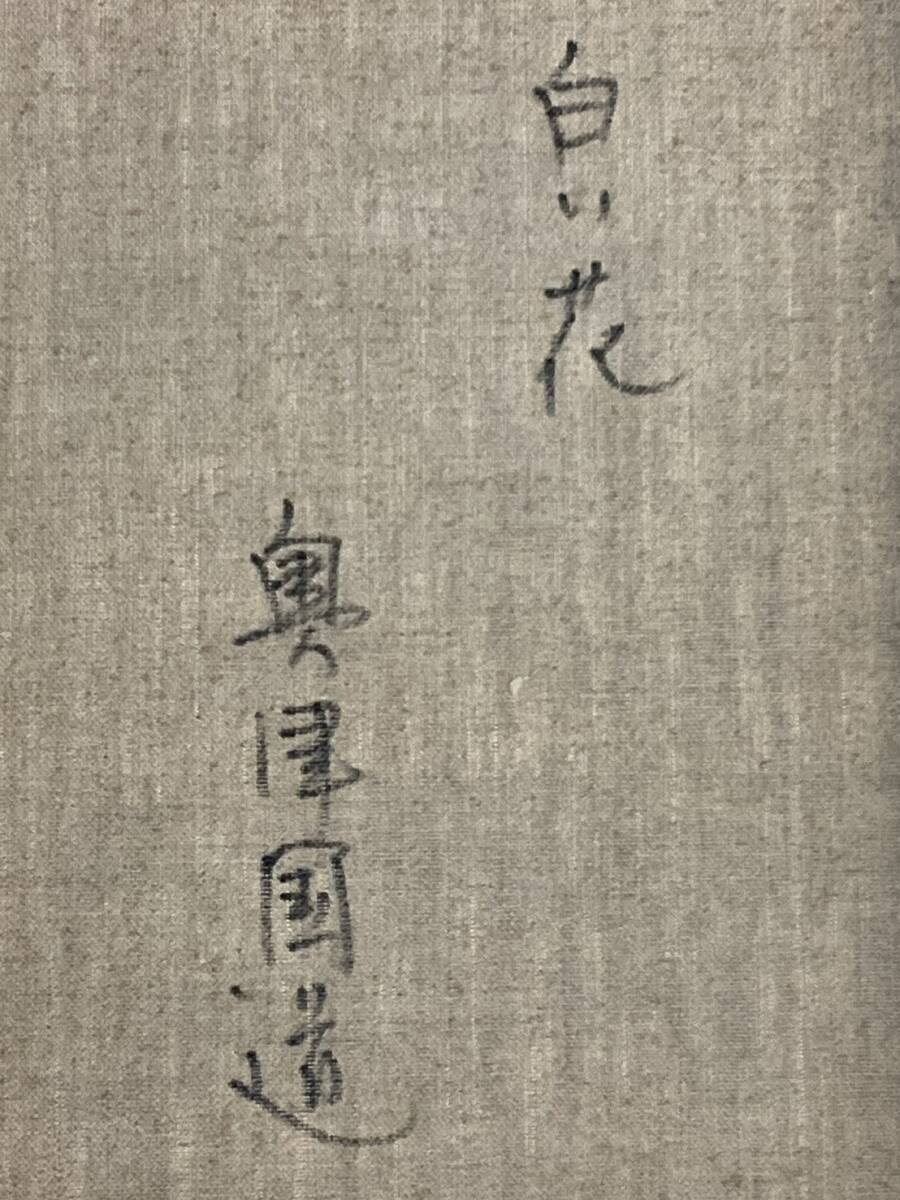 白い花
奥津国道